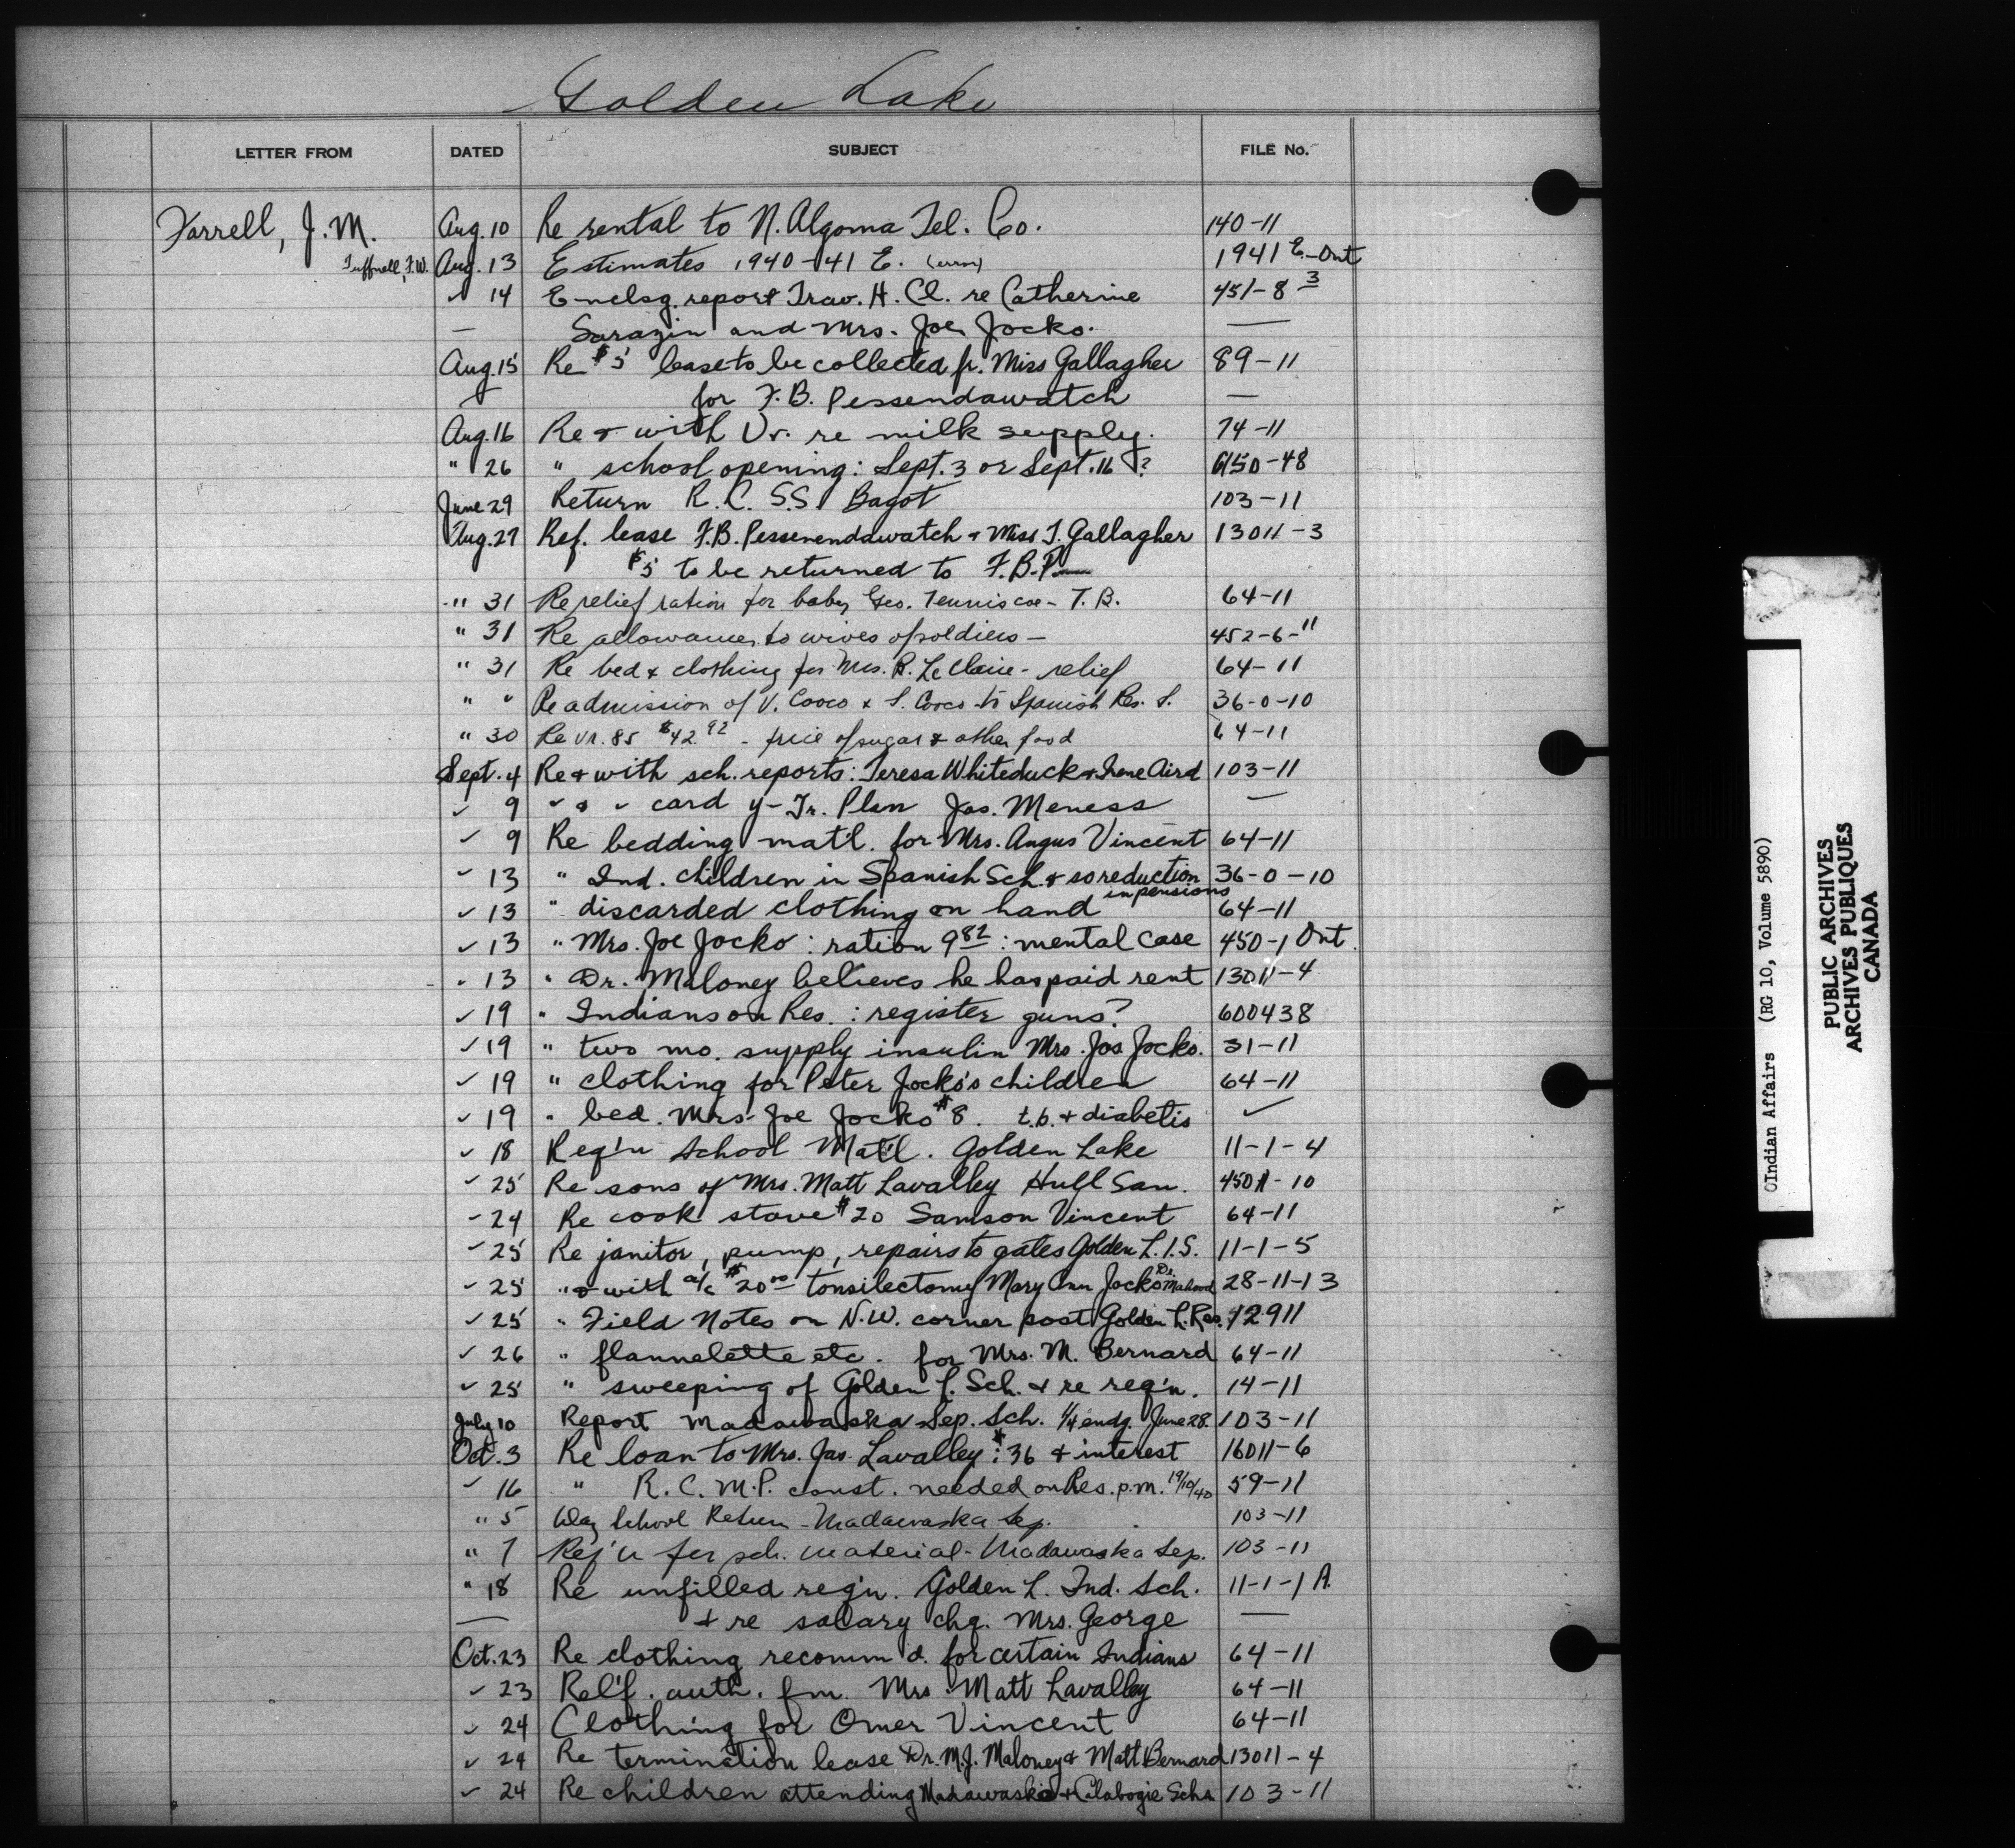 Golden Lake
LETTER FROM DATED SUBJECT FILE No.
Farrell, J. M. Aug. 10 Re rental to N. Algoma Tel. Co. 140-11
Tuffnell, F.W. Aug. 13 Estimates 1940-41 E. 1941 E-Ont
✓ 14 Enclsg. report Trav. H. Cl. re Catherine 451-8 3
— Sarazin and Mrs. Joe Jocko. —
Aug. 15 Re $5 lease to be collected fr. Miss Gallagher 89-11
for F.B. Pessendawatch —
Aug. 16 Re & with Vr. re milk supply. 74-11
" 26 " school opening: Sept. 3 or Sept. 16? 6150-48
June 29 Return R.C. S.S. Bagot 103-11
Aug. 27 Ref. lease F.B. Pessenendawatch & Miss T. Gallagher 13011-3
$5 to be returned to F.B.P.
" 31 Re relief ration for baby Geo. Tenniscoe - T.B. 64-11
" 31 Re allowances to wives of soldiers — 452-6-11
" 31 Re bed & clothing for Mrs. R. LeClaire - relief 64-11
" " Re admission of V. Cooco & S. Cooco to Spanish Res. S. 36-0-10
" 30 Re vr. 85 $42.92 - price of sugar & other food 64-11
Sept. 4 Re & with sch. reports: Teresa Whiteduck & Irene Aird 103-11
✓ 9 ✓ & ✓ card Y-Tr. Plan Jas. Meness —
✓ 9 Re bedding mat'l. for Mrs. Angus Vincent 64-11
✓ 13 " Ind. children in Spanish Sch. & so reduction in pensions 36-0-10
✓ 13 " discarded clothing on hand 64-11
✓ 13 " Mrs. Joe Jocko: ration 9 82: mental case 450-1 Ont.
" 13 " Dr. Maloney believes he has paid rent 13011-4
✓ 19 " Indians on Res.: register guns? 600438
✓ 19 " two mo. supply insulin Mrs. Jos Jocko. 31-11
✓ 19 " clothing for Peter Jocko's children 64-11
✓ 19 " bed. Mrs. Joe Jocko $8. t.b. & diabetis ✓
✓ 18 Req'n School Mat'l. Golden Lake 11-1-4
✓ 25 Re sons of Mrs. Matt Lavalley Hull San. 45011-10
✓ 24 Re cook stove $20 Samson Vincent 64-11
✓ 25 Re janitor, pump, repairs to gates Golden L.I.S. 11-1-5
✓ 25 " & with a/c $20.00 tonsilectomy Mary Ann Jocko Dr. 28-11-13
✓ 25 " Field Notes on N.W. corner post Golden L. Res. 42911
✓ 26 " flannelette etc. for Mrs. M. Bernard 64-11
✓ 25 " sweeping of Golden L. Sch. & re req'n. 14-11
July 10 Report Madawaska Sep. Sch. 1/4 endg. June 28. 103-11
Oct. 3 Re loan to Mrs. Jas. Lavalley: $36 & interest 16011-6
✓ 16 " R.C.M.P. const. needed on Res. p.m. 19/10/40 59-11
" 5 Day School Return - Madawaska Sep. 103-11
" 7 Req'n for sch. material - Madawaska Sep. 103-11
" 18 Re unfilled req'n. Golden L. Ind. Sch. 11-1-1 A.
— & re salary chq. Mrs. George —
Oct. 23 Re clothing recomm'd. for certain Indians 64-11
✓ 23 Rel'f. auth. fm. Mrs. Matt Lavalley 64-11
✓ 24 Clothing for Omer Vincent 64-11
✓ 24 Re termination lease Dr. M.J. Maloney & Matt Bernard 13011-4
✓ 24 Re children attending Madawaska & Calabogie Schs. 103-11
(Indian Affairs (RG 10, Volume 5890)
PUBLIC ARCHIVES
ARCHIVES PUBLIQUES
CANADA